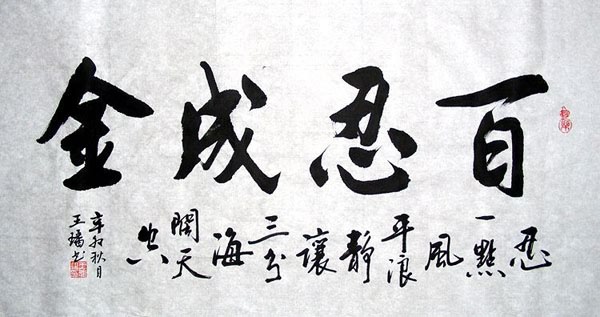 百忍成金
忍
一點
風
平浪
靜
讓
三分
海
闊天
空
辛卯秋月
王璠書